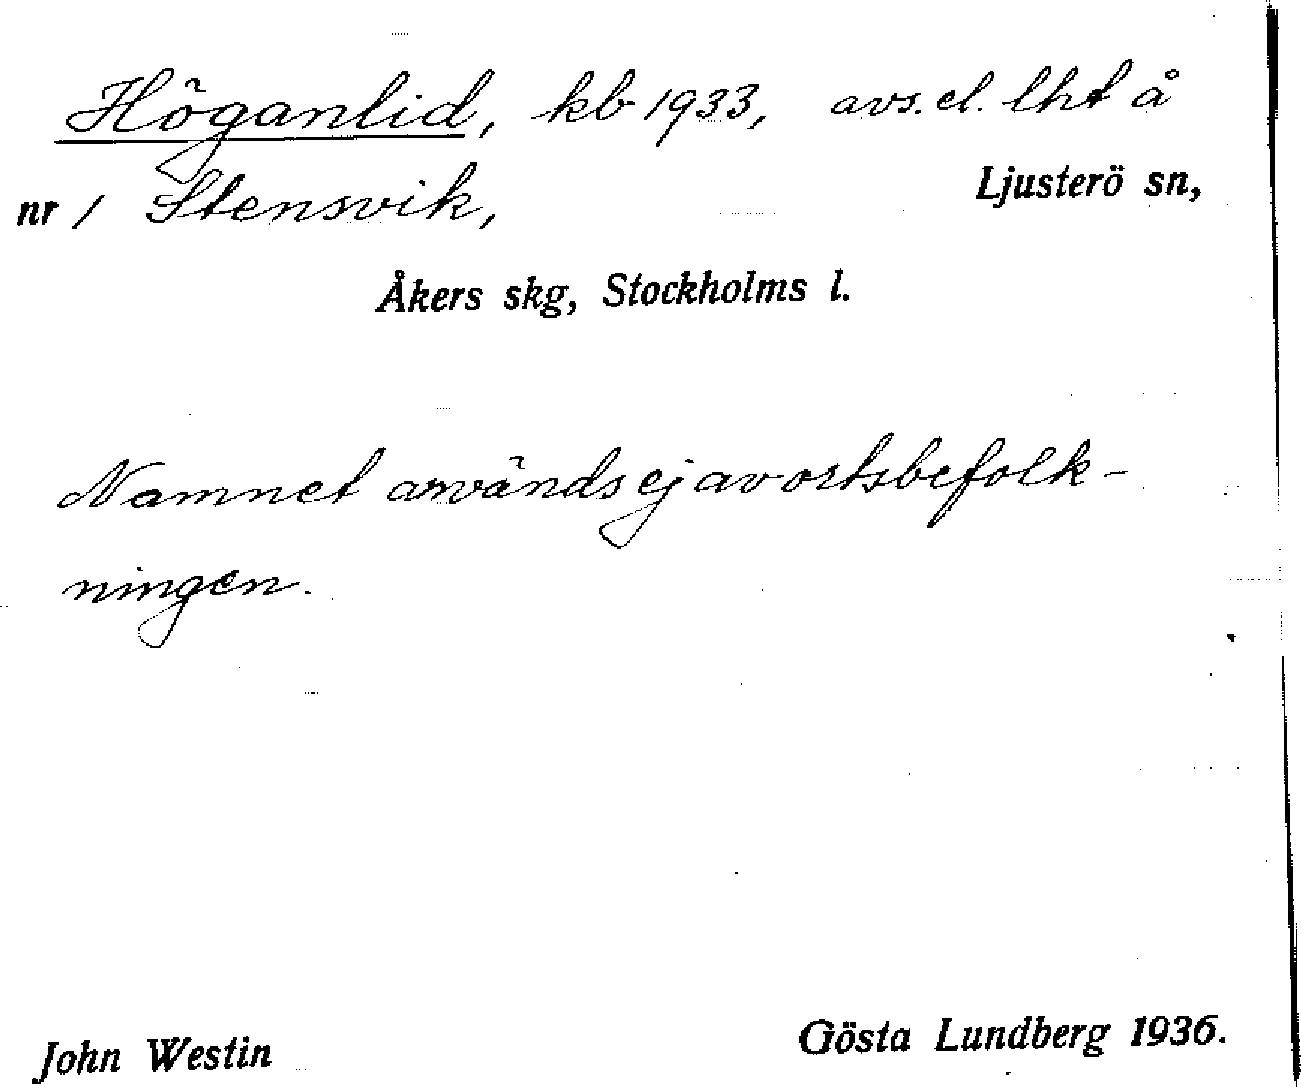 Höganlid, kb 1933, avs. el. lht å
nr 1 Stensvik, Ljusterö sn,
Åkers skg, Stockholms l.
Namnet används ej av ortsbefolk-
ningen.
John Westin Gösta Lundberg 1936.